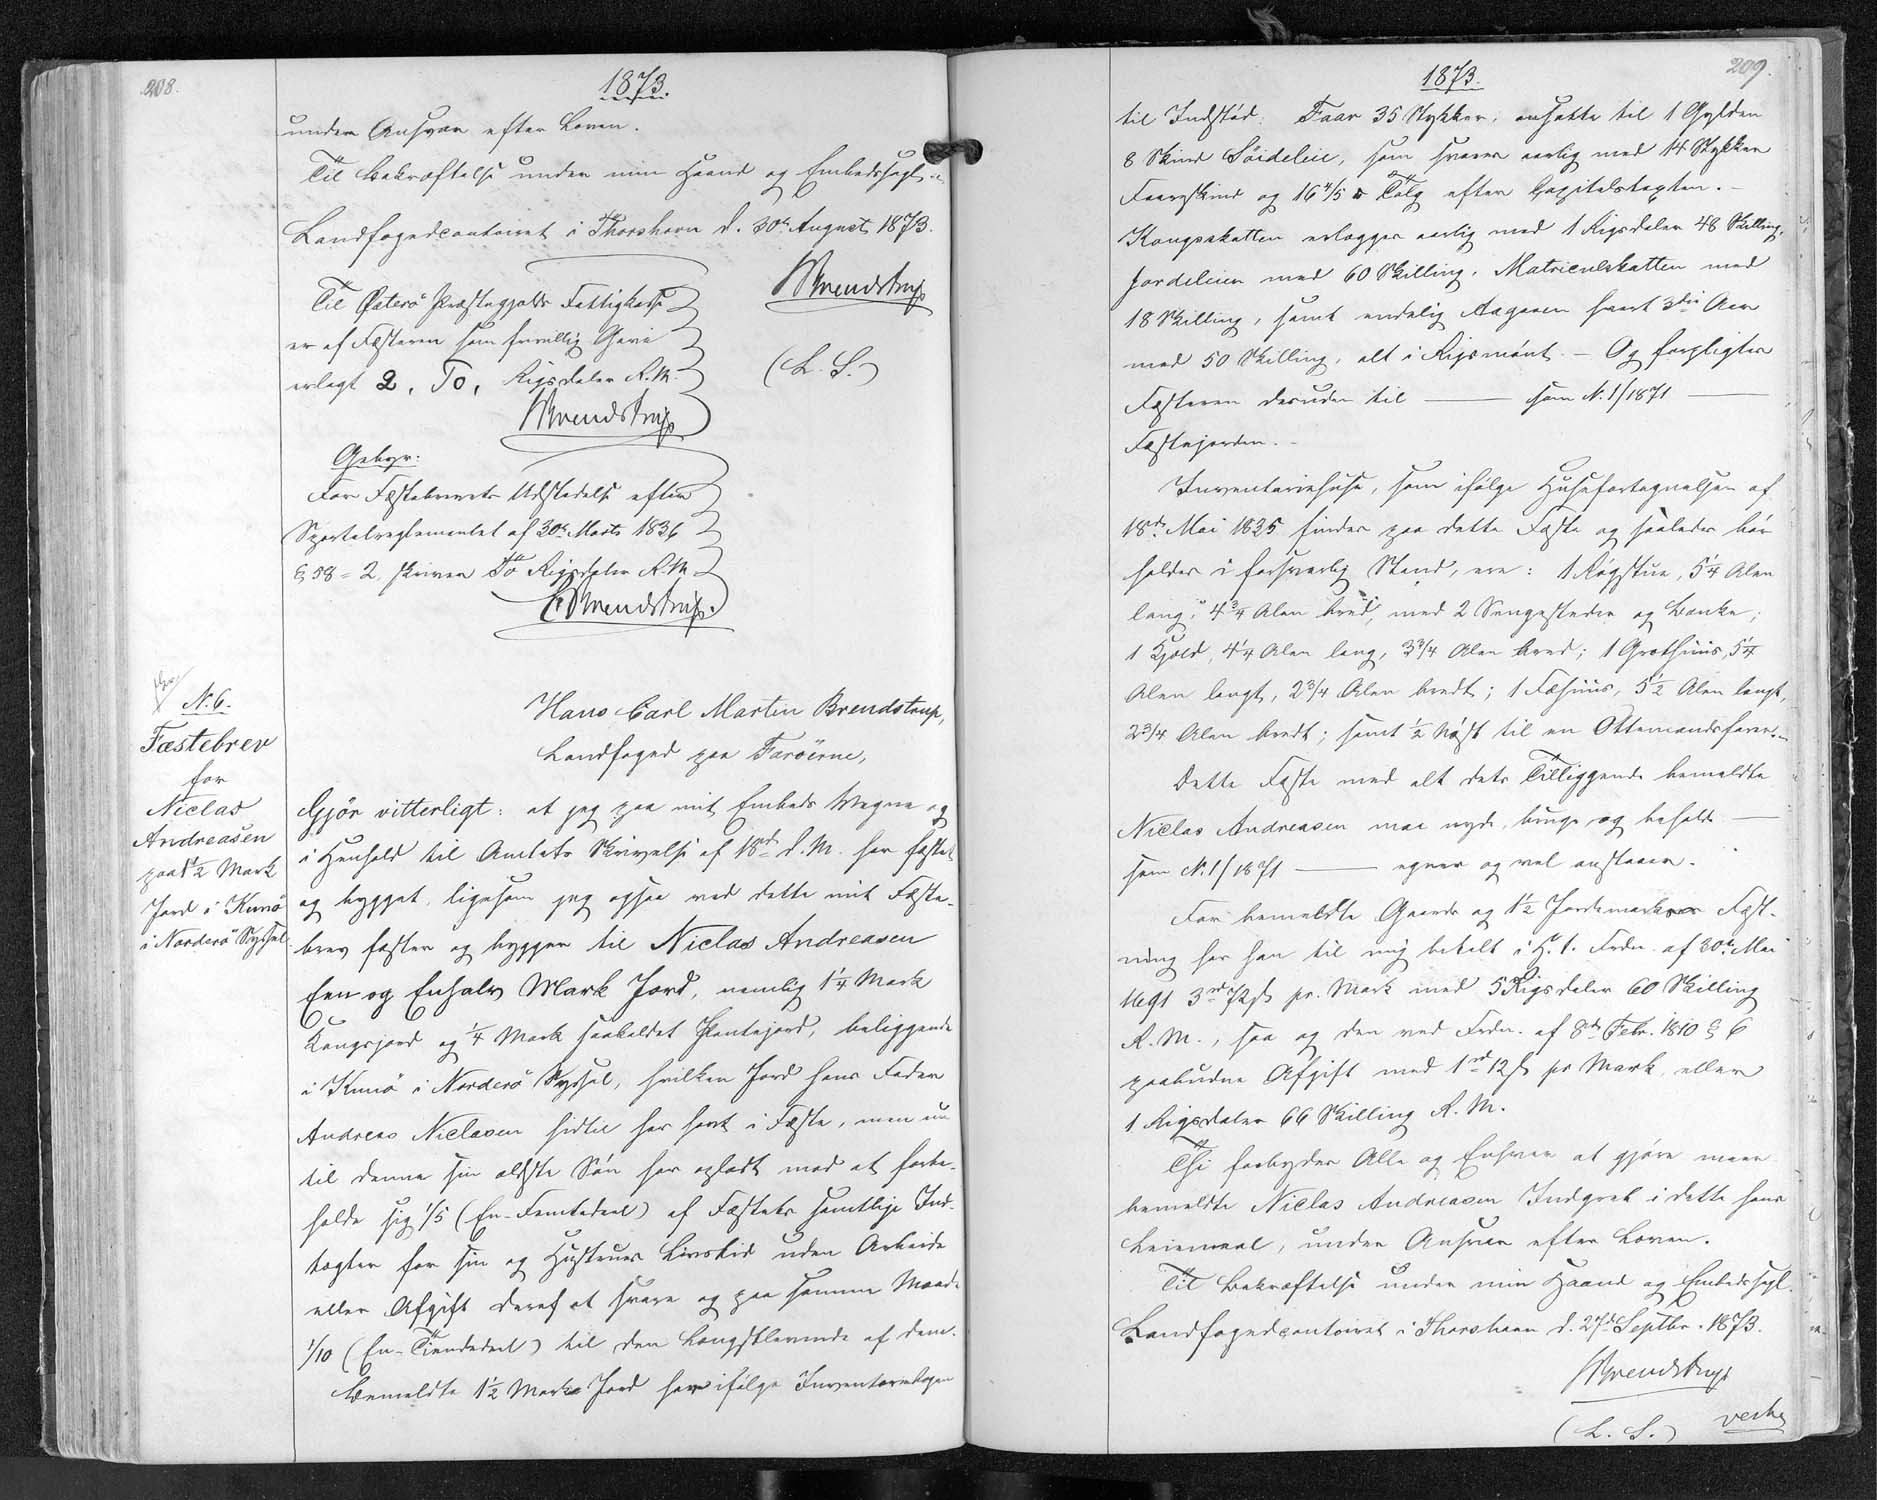 208.
1873.
under Ansvar efter Loven.
Til Bekræftelse under min Haand og Embedssegl.
Landfogedcontoiret i Thorshavn d. 30te August 1873.
HBrendstrup
(L. S.)
Til Österö Præstegjelds Fattigkasse
er af Fæsteren som frivillig Gave
erlagt 2, To, Rigsdaler R.M.
HBrendstrup
Gebyr:
For Fæstebrevets Udstedelse efter
Sportelreglementet af 30te Marts 1836
§ 58 = 2 skriver To Rigsdaler R.M.
HBrendstrup.
N. 6.
Fæstebrev
for
Niclas
Andreasen
paa 1½ Mark
Jord i Kunö
i Norderö Syssel.
Hans Carl Martin Brendstrup,
Landfoged paa Færöerne,
Gjör vitterligt: at jeg paa mit Embeds Vegne og
i Henhold til Amtets Skrivelse af 18de d. M. har fæstet
og bygget, ligesom jeg ogsaa ved dette mit Fæste-
brev fæster og bygger til Niclas Andreasen
Een og Enhalv Mark Jord, nemlig 1¼ Mark
Kongsjord og ¼ Mark saakaldet Pantejord, beliggende
i Kunö i Norderö Syssel, hvilken Jord hans Fader
Andreas Niclasen hidtil har havt i Fæste, men nu
til denne sin ældste Sön har opladt mod at forbe-
holde sig 1/5 (En-Femtedeel) af Fæstets samtlige Ind-
tægter for sin og Hustrues Livstid uden Arbeide
eller Afgift deraf at svare og paa samme Maade
1/10 (En-Tiendedeel) til den Længstlevende af dem.
Bemeldte 1½ Mark Jord har ifölge Inventariebogen
209.
1873.
til Indstöd: Faar 35 Stykker; ansatte til 1 Gylden
8 Skind Söideleie, som svares aarlig med 14 Stykker
Faareskind og 16 4/5 Talg efter Capitelstaxten.-
Kongsskatten erlægges aarlig med 1 Rigsdaler 48 Skilling,
Jordeleien med 60 Skilling, Matriculskatten med
18 Skilling, samt endelig Aagaven hvert 3die Aar
med 50 Skilling, alt i Rigsmönt. - Og forpligtes
Fæsteren desuden til — som N. 1/1871 —
Fæstejorden. -
Inventariehuse, som ifölge Husefortegnelsen af
18de Mai 1835 findes paa dette Fæste og saaledes bör
holdes i forsvarlig Stand, ere: 1 Rögstue, 5¼ Alen
lang, 4¾ Alen bred, med 2 Sengesteder og Bænke;
1 Hjeld, 4¼ Alen lang, 3¾ Alen bred; 1 Grothuus, 5¼
Alen langt, 2¾ Alen bredt; 1 Fæhuus, 5½ Alen langt,
2¾ Alen bredt; samt ½ Nöst til en Ottemandsfarer.-
Dette Fæste med alt dets Tilliggende bemeldte
Niclas Andreasen maa nyde, bruge og beholde —
som N. 1/1871 — egner og vel anstaaer.
For bemeldte Gaards og 1½ Jordemarks Fæst-
ning har han til mig betalt i H. t. Frdn. af 30te Mai
1691 3rd 72sk pr. Mark med 5 Rigsdaler 60 Skilling
R. M., saa og den ved Frdn. af 8de Febr. 1810 § 6
paabudne Afgift med 1rd 12sk pr Mark, eller
1 Rigsdaler 66 Skilling R. M.
Thi forbydes Alle og Enhver at gjöre meer-
bemeldte Niclas Andreasen Indgreb i dette hans
Leiemaal, under Ansvar efter Loven.
Til Bekræftelse under min Haand og Embedssegl.
Landfogedcontoiret i Thorshavn d. 27de Septbr. 1873.
HBrendstrup
(L. S.)